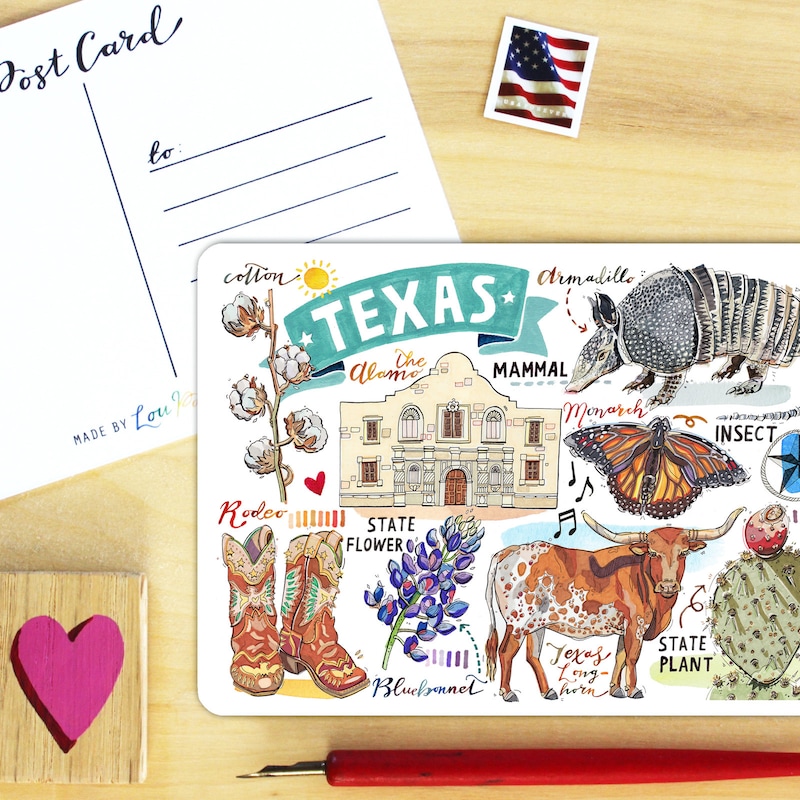 Post Card
to:
MADE BY Lou
cotton
TEXAS
Armadillo
The
Alamo
MAMMAL
Monarch
INSECT
Rodeo
STATE
FLOWER
Bluebonnet
Texas
Long-
horn
STATE
PLANT